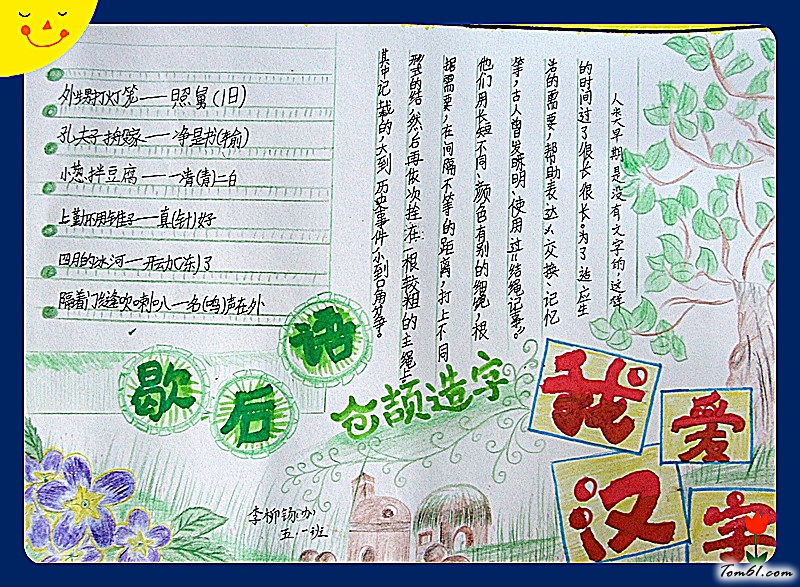 外甥打灯笼——照舅(旧)
孔夫子搬家——净是书(输)
小葱拌豆腐——一清(青)二白
上鞋不用锥子——真(针)好
四月的冰河——开动(冻)了
隔着门缝吹喇叭——名(鸣)声在外
歇后语
人类早期是没有文字的,这样
的时间过了很长很长。为了适应生
活的需要,帮助表达、交换、记忆
等,古人曾发明、使用过“结绳记事”。
他们用长短不同、颜色有别的细绳,根
据需要,在间隔不等的距离,打上不同
形式的结,然后再依次拴在一根较粗的主绳上
其中记载的,大到历史事件,小到口角分争。
仓颉造字
我爱汉字
李柳
五.一班
Tom61.com